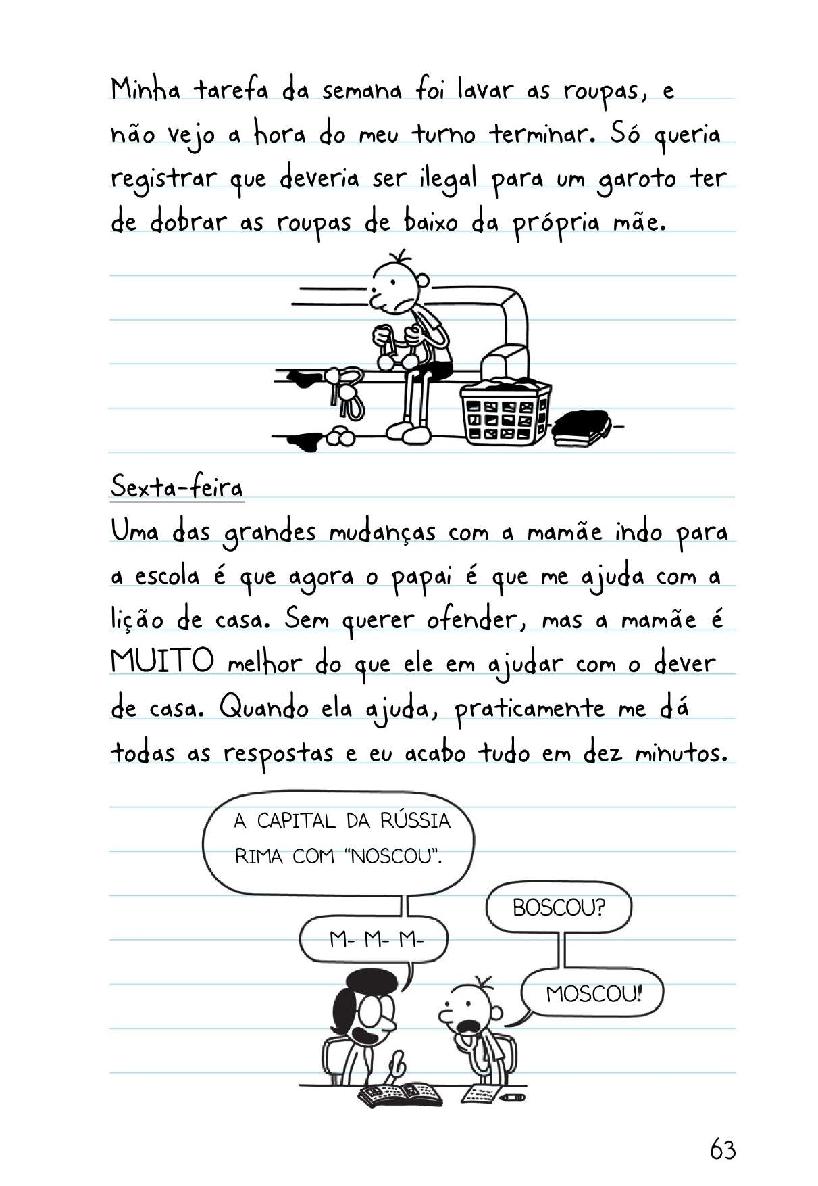 Minha tarefa da semana foi lavar as roupas, e
não vejo a hora do meu turno terminar. Só queria
registrar que deveria ser ilegal para um garoto ter
de dobrar as roupas de baixo da própria mãe.
Sexta-feira
Uma das grandes mudanças com a mamãe indo para
a escola é que agora o papai é que me ajuda com a
lição de casa. Sem querer ofender, mas a mamãe é
MUITO melhor do que ele em ajudar com o dever
de casa. Quando ela ajuda, praticamente me dá
todas as respostas e eu acabo tudo em dez minutos.
A CAPITAL DA RÚSSIA
RIMA COM "NOSCOU".
M- M- M-
BOSCOU?
MOSCOU!
63